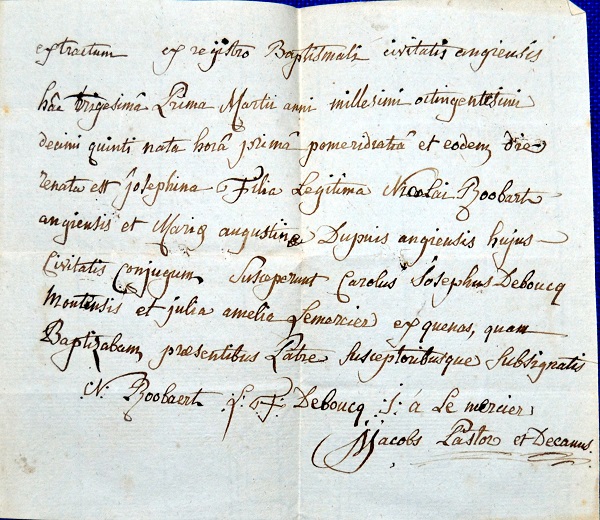 extractum ex registro Baptismali civitatis angiensis
hâc trigesimâ Prima Martii anni millesimi octingentesimi
decimi quinti nata horâ primâ pomeridianâ et eodem die
renata est josephina Filia Legitima Nicolai Roobart
angiensis et Mariæ augustinæ Dupuis angiensis hujus
Civitatis Conjugum, Susceperunt Carolus Josephus Deboucq
Montensis et julia amelia Lemercier ex quenas, quam
Baptizabam, præsentibus Patre Susceptoribusque Subsignatis
N. Roobaert C: J: Deboucq J: a Le mercier
Macobs Pastor et Decanus.